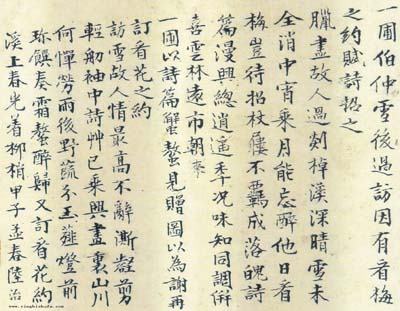 一圃伯仲雪後過訪因有看梅
之約賦詩招之
臘盡故人過剡棹溪深晴雪未
全消中宵乘月能忘醉他日看
梅豈待招杖屨不羈成落魄詩
篇漫興總逍遙季況味知同調併
喜雲林遠市朝
一圃以詩篇蟹螯見贈圖以為謝再
訂看花之約
訪雪故人情最高不辭澌壑剪
輕舠袖中詩艸已乘興畫裏山川
何憚勞雨後野蔬分玉薤燈前
珎饌奏霜螯醉歸又訂看花約
溪上春光着柳梢甲子孟春陸治